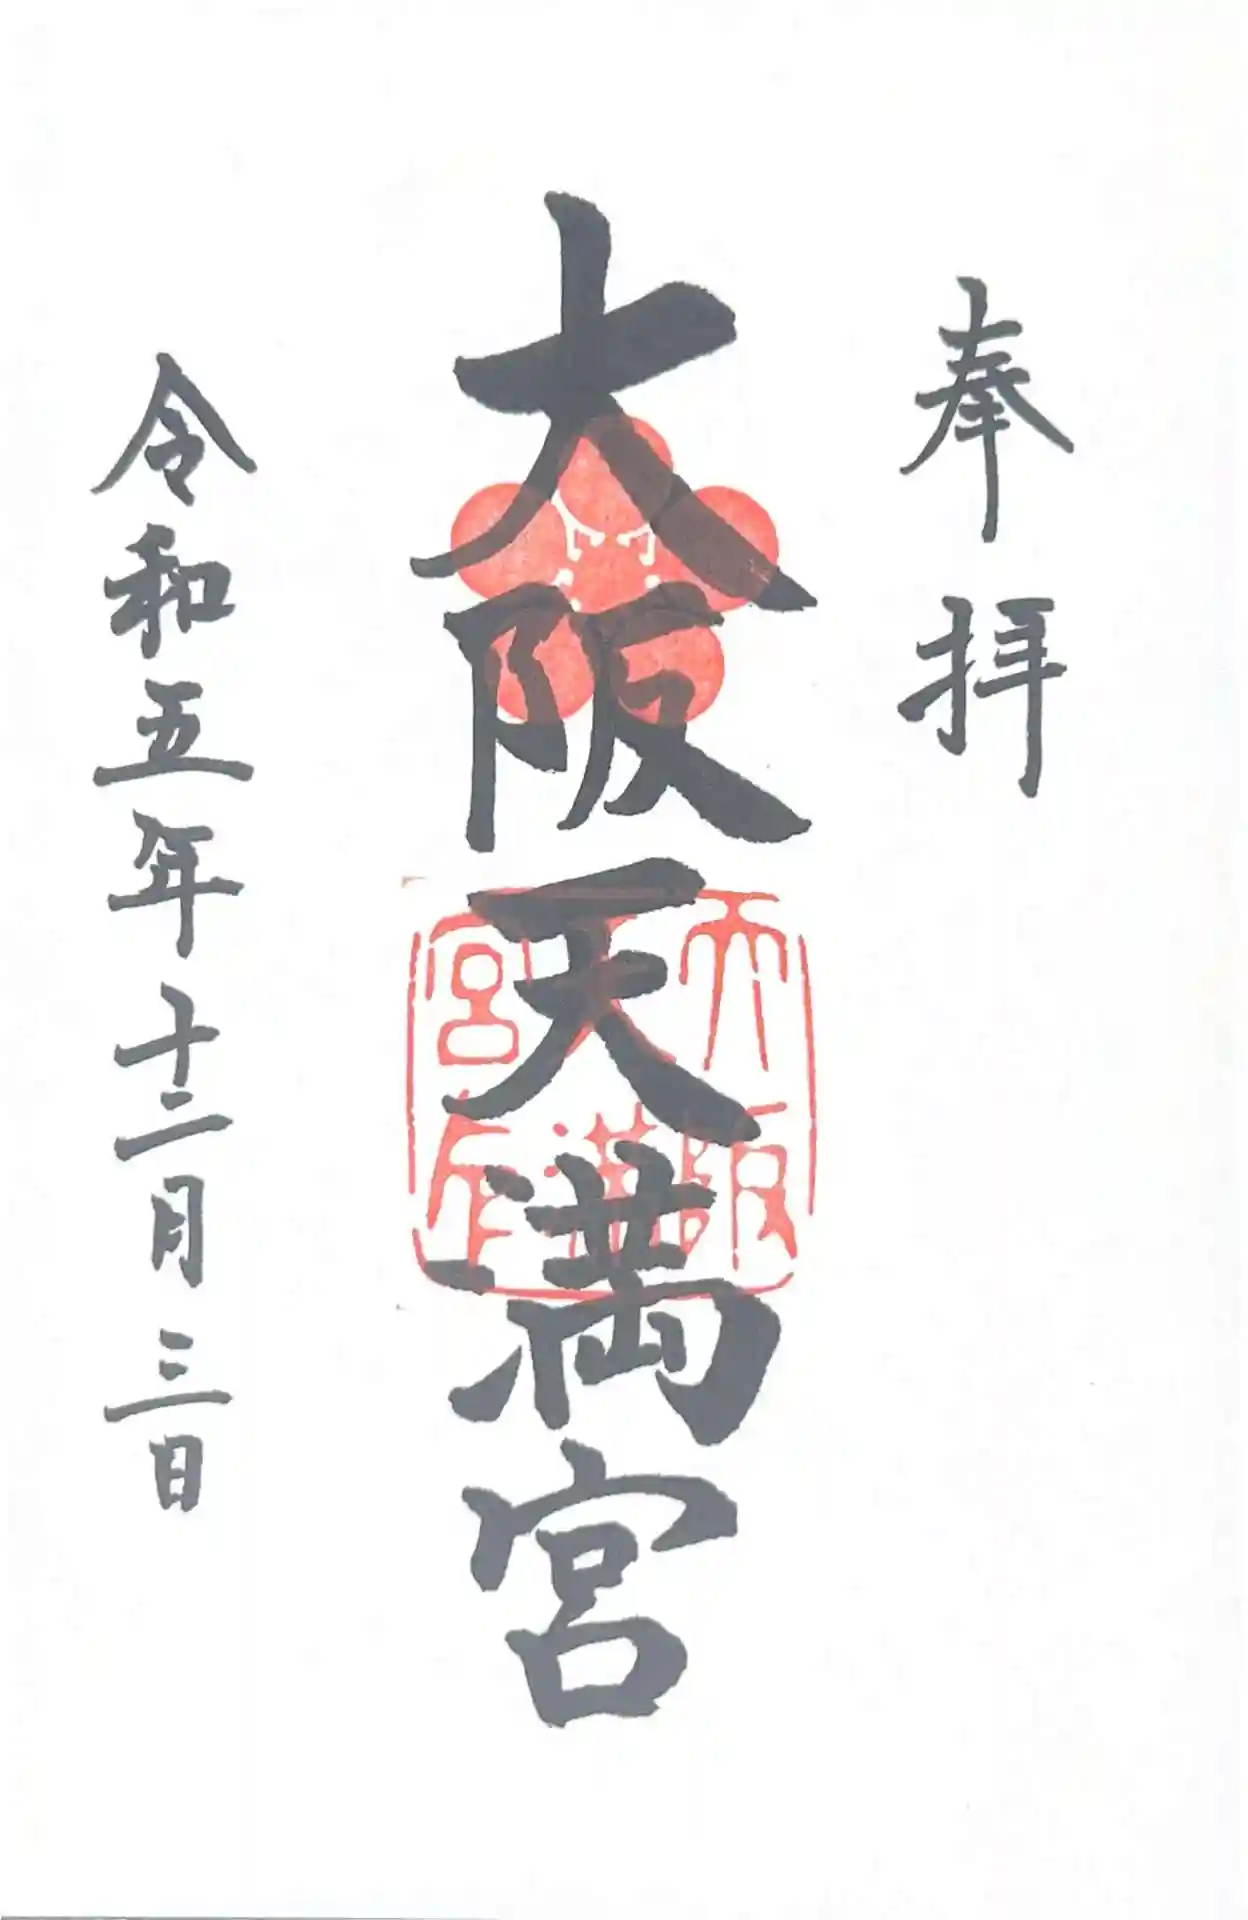 奉拝
大阪天満宮
令和五年十二月三日
大阪
天満
宮印